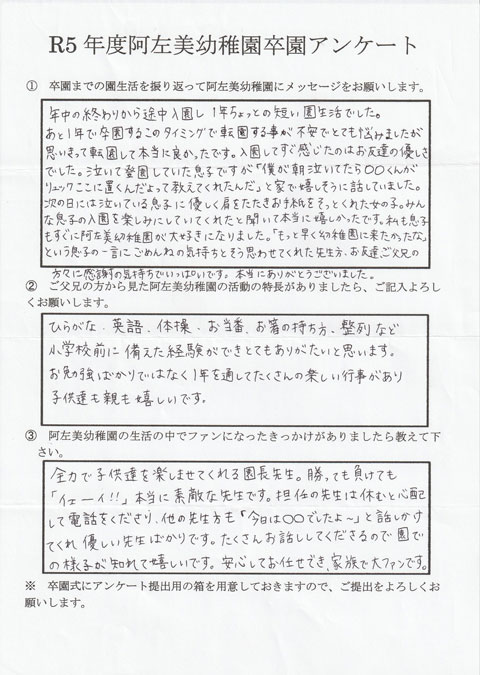 R5 年度阿左美幼稚園卒園アンケート
① 卒園までの園生活を振り返って阿左美幼稚園にメッセージをお願いします。
年中の終わりから途中入園し 1年ちょっとの短い園生活でした。
あと1年で卒園するこのタイミングで転園する事が不安でとても悩みましたが
思いきって転園して本当に良かったです。入園してすぐ感じたのはお友達の優しさ
でした。泣いて登園していた息子ですが「僕が朝泣いてたら〇〇くんが
リュックここに置くんだよって教えてくれたんだ」と家で嬉しそうに話していました。
次の日には泣いている息子に優しく肩をたたきお手紙をそっとくれた女の子。みん
な息子の入園を楽しみにしていてくれたと聞いて本当に嬉しかったです。私も息子
もすぐに阿左美幼稚園が大好きになりました。「もっと早く幼稚園に来たかったな」
という息子の一言にごめんねの気持ちとそう思わせてくれた先生方、お友達ご父兄の
方々に感謝の気持ちでいっぱいです。本当にありがとうございました。
② ご父兄の方から見た阿左美幼稚園の活動の特長がありましたら、ご記入よろし
くお願いします。
ひらがな、英語、体操、お当番、お箸の持ち方、整列など
小学校前に備えた経験ができとてもありがたいと思います。
お勉強ばかりではなく1年を通してたくさんの楽しい行事があり
子供達も親も嬉しいです。
③ 阿左美幼稚園の生活の中でファンになったきっかけがありましたら教えて下
さい。
全力で子供達を楽しませてくれる園長先生。勝っても負けても
「イェーイ!!」本当に素敵な先生です。担任の先生は休むと心配
して電話をくださり、他の先生方も「今日は〇〇でしたよ～」と話しかけ
てくれ 優しい先生ばかりです。たくさんお話ししてくださるので園で
の様子が知れて嬉しいです。安心してお任せでき、家族で大ファンです。
※ 卒園式にアンケート提出用の箱を用意しておきますので、ご提出をよろしくお
願いします。